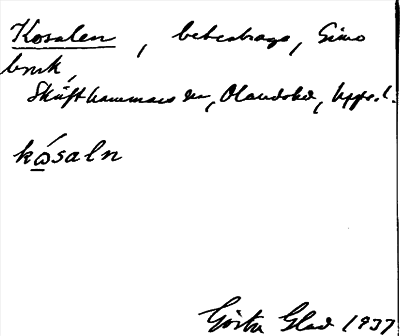 Kosalen, beteshage, Gimo
bruk,
Skäfthammars sn, Olandshd, Uppl.
kώsaln
Gösta Glad 1937